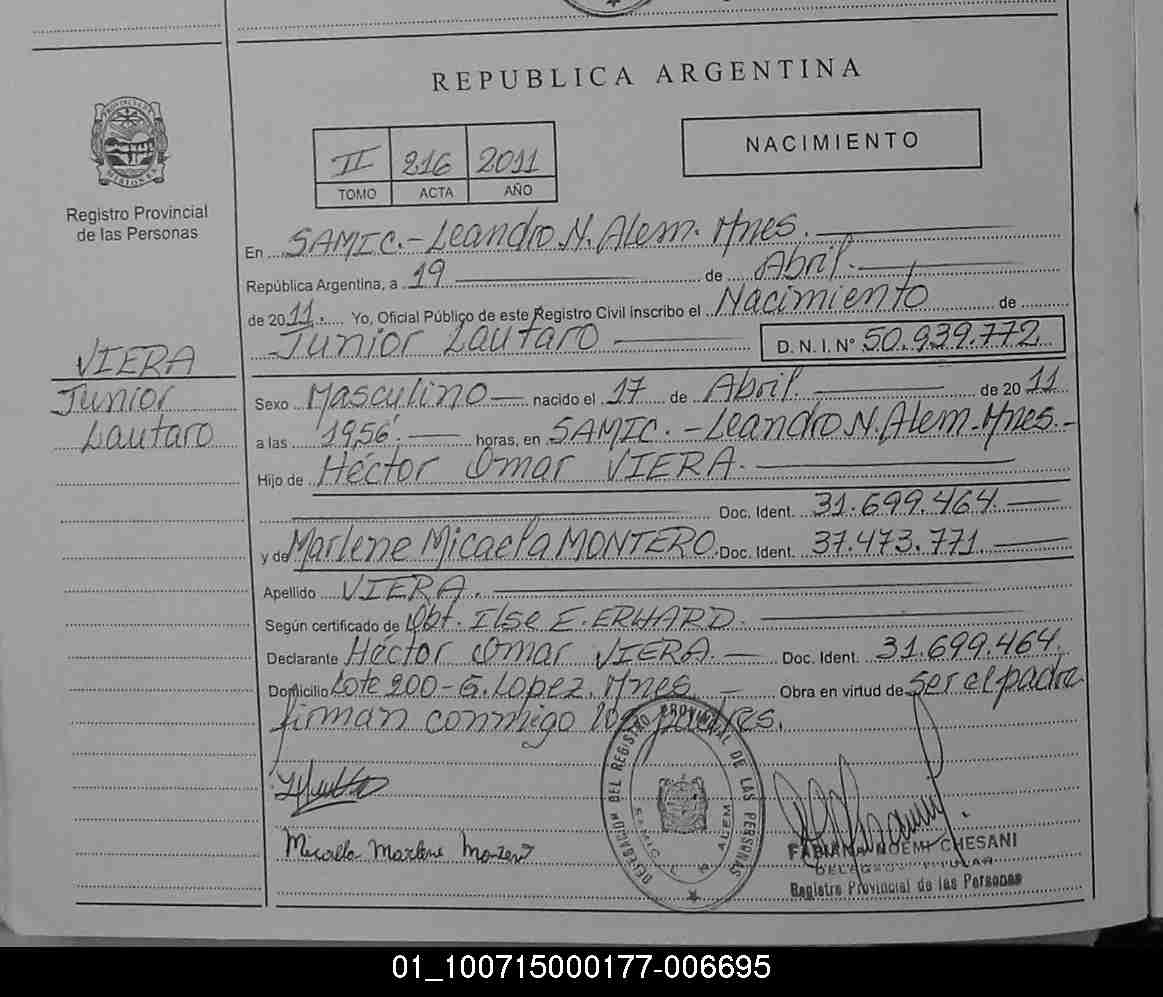 REPUBLICA ARGENTINA
NACIMIENTO
II 216 2011
TOMO ACTA AÑO
PROVINCIA DE MISIONES
Registro Provincial
de las Personas
VIERA
Junior
Lautaro
En SAMIC.-Leandro N. Alem. Mnes.
República Argentina, a 19 de Abril.
de 2011. Yo, Oficial Público de este Registro Civil inscribo el Nacimiento de
Junior Lautaro D. N. I. N° 50.939.772
Sexo Masculino nacido el 17 de Abril. de 2011
a las 19,56 horas, en SAMIC.-Leandro N. Alem. Mnes.-
Hijo de Héctor Omar VIERA.
Doc. Ident. 31.699.464
y de Marlene Micaela MONTERO. Doc. Ident. 37.473.771
Apellido VIERA.
Según certificado de Obt. Ilse E. ERHARD.
Declarante Héctor Omar VIERA. Doc. Ident. 31.699.464.
Domicilio Lote 200-G. Lopez. Mnes. Obra en virtud de ser el padre
firman conmigo los padres.
Micaela Marlene Montero
DELEGACION DEL REGISTRO PROVINCIAL DE LAS PERSONAS
SAMIC L. N. ALEM
FABIANA NOEMI CHESANI
DELEGADA TITULAR
Registro Provincial de las Personas
01_100715000177-006695